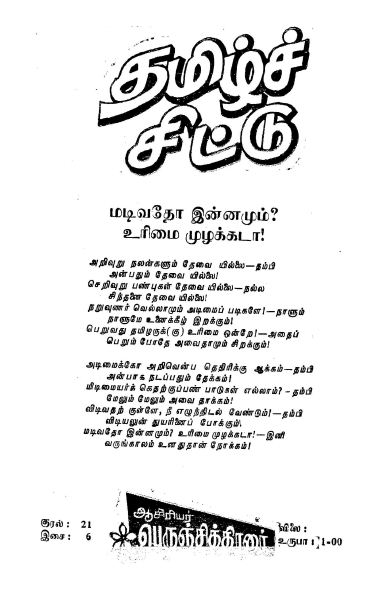 தமிழ்ச்
சிட்டு
மடிவதோ இன்னமும்?
உரிமை முழக்கடா!
அறிவுறு நலன்களும் தேவை யில்லை—தம்பி
அன்பதும் தேவை யில்லை!
செறிவுறு பண்புகள் தேவை யில்லை—நல்ல
சிந்தனை தேவை யில்லை!
நறுவுணர் வெல்லாமும் அடிமைப் படிகளே!—நாளும்
நாளுமே உனைக்கீழ் இறக்கும்!
பெறுவது தமிழருக்(கு) உரிமை ஒன்றே!—அதைப்
பெறும் போதே அவைதாமும் சிறக்கும்!
அடிமைக்கோ அறிவென்ப தெதிரிக்கு ஆக்கம்—தம்பி
அன்பாக நடப்பதும் தேக்கம்!
மிடிமையர்க் கெதற்குப்பண் பாடுகள் எல்லாம்?—தம்பி
மேலும் மேலும் அவை தாக்கம்!
விடிவதற் குள்ளே, நீ எழுந்திடல் வேண்டும்!—தம்பி
விடியலுன் துயரினைப் போக்கும்!
மடிவதோ இன்னமும்? உரிமை முழக்கடா!—இனி
வருங்காலம் உனதுதான் நோக்கம்!
குரல் : 21
இசை : 6
ஆசிரியர்
பெருஞ்சித்திரனார்
விலை :
உருபா : 1-00